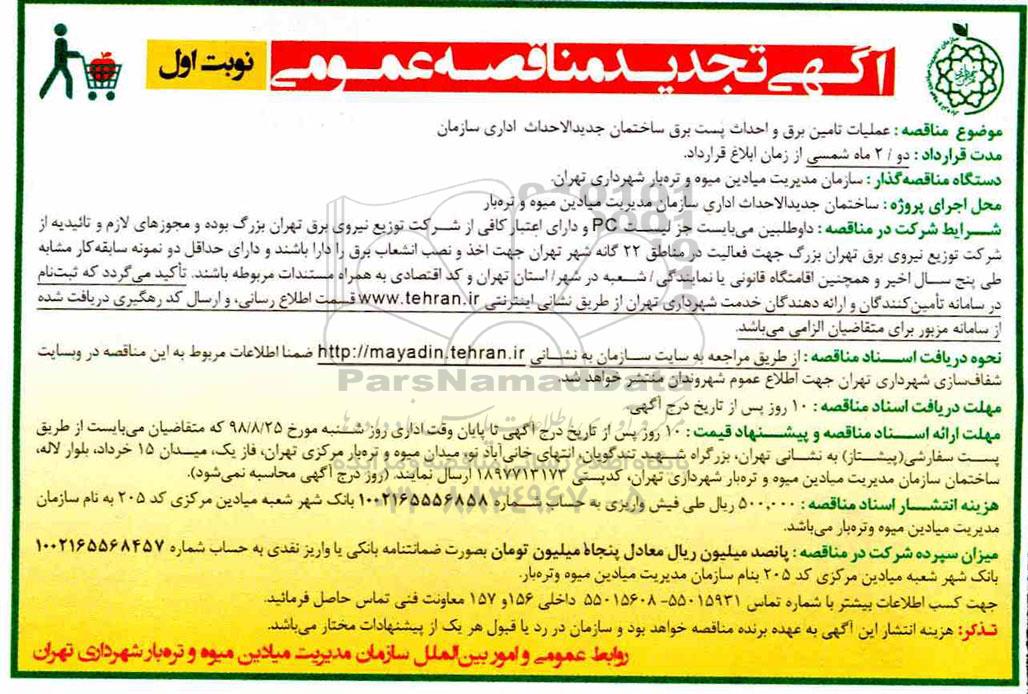 آگهی تجدید مناقصه عمومی
نوبت اول
موضوع مناقصه : عملیات تامین برق و احداث پست برق ساختمان جدیدالاحداث اداری سازمان
مدت قرارداد : دو / ۲ ماه شمسی از زمان ابلاغ قرارداد.
دستگاه مناقصه‌گذار : سازمان مدیریت میادین میوه و تره‌بار شهرداری تهران.
محل اجرای پروژه : ساختمان جدیدالاحداث اداری سازمان مدیریت میادین میوه و تره‌بار
شرایط شرکت در مناقصه : داوطلبین می‌بایست جز لیست PC و دارای اعتبار کافی از شرکت توزیع نیروی برق تهران بزرگ بوده و مجوزهای لازم و تائیدیه از
شرکت توزیع نیروی برق تهران بزرگ جهت فعالیت در مناطق ۲۲ گانه شهر تهران جهت اخذ و نصب انشعاب برق را دارا باشند و دارای حداقل دو نمونه سابقه‌کار مشابه
طی پنج سال اخیر و همچنین اقامتگاه قانونی یا نمایندگی / شعبه در شهر/ استان تهران و کد اقتصادی به همراه مستندات مربوطه باشند. تأکید می‌گردد که ثبت‌نام
در سامانه تأمین‌کنندگان و ارائه دهندگان خدمت شهرداری تهران از طریق نشانی اینترنتی www.tehran.ir قسمت اطلاع رسانی، و ارسال کد رهگیری دریافت شده
از سامانه مزبور برای متقاضیان الزامی می‌باشد.
نحوه دریافت اسناد مناقصه : از طریق مراجعه به سایت سازمان به نشانی http://mayadin.tehran.ir ضمنا اطلاعات مربوط به این مناقصه در وبسایت
شفاف‌سازی شهرداری تهران جهت اطلاع عموم شهروندان منتشر خواهد شد.
ParsNamadData
مهلت دریافت اسناد مناقصه : ۱۰ روز پس از تاریخ درج آگهی.
مهلت ارائه اسناد مناقصه و پیشنهاد قیمت : ۱۰ روز پس از تاریخ درج آگهی تا پایان وقت اداری روز شنبه مورخ ۹۸/۸/۲۵ که متقاضیان می‌بایست از طریق
پست سفارشی(پیشتاز) به نشانی تهران، بزرگراه شهید تندگویان، انتهای خانی‌آباد نو، میدان میوه و تره‌بار مرکزی تهران، فاز یک، میدان ۱۵ خرداد، بلوار لاله،
ساختمان سازمان مدیریت میادین میوه و تره‌بار شهرداری تهران، کدپستی ۱۸۹۷۷۱۳۱۷۳ ارسال نمایند. (روز درج آگهی محاسبه نمی‌شود).
هزینه انتشار اسناد مناقصه : ۵۰۰,۰۰۰ ریال طی فیش واریزی به حساب شماره ۱۰۰۲۱۶۵۵۵۶۸۵۸ بانک شهر شعبه میادین مرکزی کد ۲۰۵ به نام سازمان
مدیریت میادین میوه وتره‌بار می‌باشد.
میزان سپرده شرکت در مناقصه : پانصد میلیون ریال معادل پنجاه میلیون تومان بصورت ضمانتنامه بانکی یا واریز نقدی به حساب شماره ۱۰۰۲۱۶۵۵۶۸۴۵۷
بانک شهر شعبه میادین مرکزی کد ۲۰۵ بنام سازمان مدیریت میادین میوه وتره‌بار.
جهت کسب اطلاعات بیشتر با شماره تماس ۵۵۰۱۵۹۳۱- ۵۵۰۱۵۶۰۸ داخلی ۱۵۶و ۱۵۷ معاونت فنی تماس حاصل فرمائید.
تذکر: هزینه انتشار این آگهی به عهده برنده مناقصه خواهد بود و سازمان در رد یا قبول هر یک از پیشنهادات مختار می‌باشد.
روابط عمومی و امور بین‌الملل سازمان مدیریت میادین میوه و تره‌بار شهرداری تهران